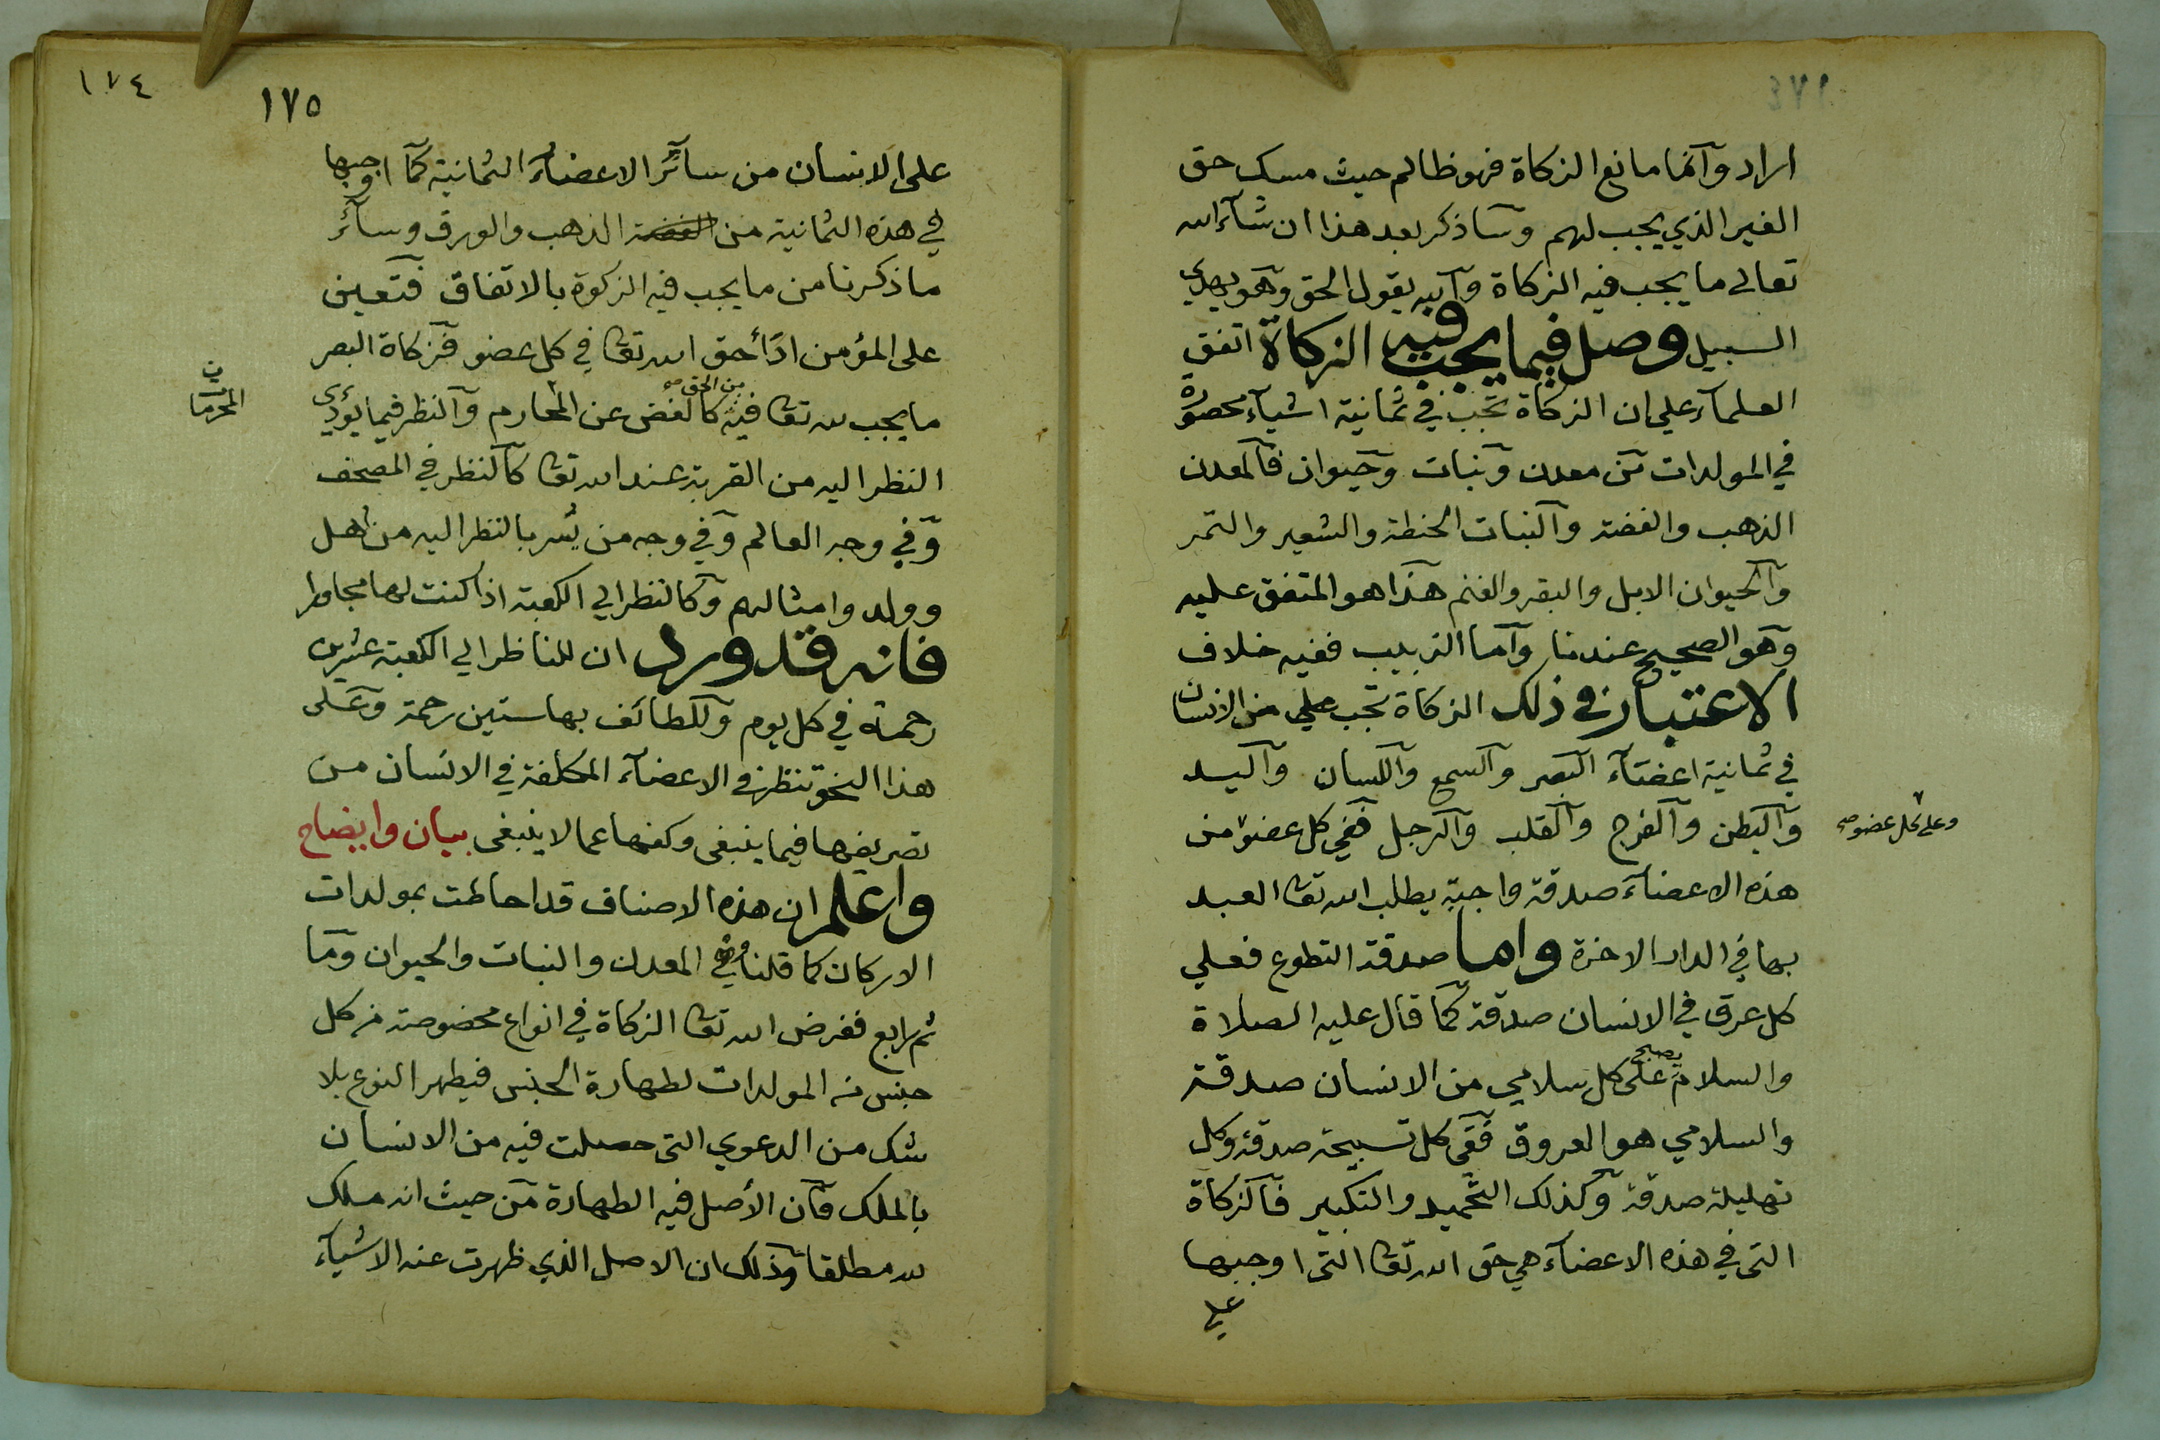 اراد وانما مانع الزكاة فهو ظالم حيث مسك حق
الغير الذي يجب لهم وساذكر بعد هذا ان شآء الله
تعالى ما يجب فيه الزكاة والله يقول الحق وهو يهدي
السبيل وصل فيما يجب فيه الزكاة اتفق
العلمآء علي ان الزكاة تجب في ثمانية اشيآء محصورة
في المولدات من معدن ونبات وحيوان فالمعدن
الذهب والفضة والنبات الحنطة والشعير والتمر
والحيوان الابل والبقر والغنم هذا هو المتفق عليه
وهو الصحيح عندنا واما الزبيب ففيه خلاف
الاعتبار في ذلك الزكاة تجب علي من الانسان
في ثمانية اعضآء البصر والسمع واللسان واليد
والبطن والفرج والقلب والرجل ففي كل عضو من
وعلى كل عضو صح
هذه الاعضآء صدقة واجبة يطلب الله تعا العبد
بها في الدار الاخرة واما صدقة التطوع فعلي
كل عرق في الانسان صدقة كما قال عليه الصلاة
والسلام يصبح على كل سلامي من الانسان صدقة
والسلامي هو العروق ففي كل تسبيحة صدقة وكل
تهليلة صدقة وكذلك التحميد والتكبير فالزكاة
التي في هذه الاعضآء هي حق الله تعا التي اوجبها
علي
١٧٤
١٧٥
على الانسان من سآئر الاعضآء الثمانية كما اوجبها
في هذه الثمانية من الفضة الذهب والورق وسآئر
ما ذكرنا من ما يجب فيه الزكوة بالاتفاق فتعين
على المؤمن ادآ حق الله تعا في كل عضو فزكاة البصر
ما يجب لله تعا فيه من الحق صح كالغض عن المحارم والنظر فيما يؤدي
المحرمات
النظر اليه من القربة عند الله تعا كالنظر في المصحف
وفي وجه العالم وفي وجه من يُسر بالنظر اليه من اهل
وولد وامثالهم وكالنظر الي الكعبة اذا كنت لها مجاورا
فانه قد ورد ان للناظر الي الكعبة عشرين
رحمة في كل يوم وللطائف بها ستين رحمة وعلى
هذا النحو تنظر في الاعضآء المكلفة في الانسان من
تصريفها فيما ينبغي وكفها عما لا ينبغي بيان وايضاح
واعلم ان هذه الاصناف قد احاطت بمولدات
الاركان كما قلنا وهي المعدن والنبات والحيوان وما
ثم رابع ففرض الله تعا الزكاة في انواع مخصوصة من كل
جنس من المولدات لطهارة الجنس فيطهر النوع بلا
شك من الدعوي التي حصلت فيه من الانسان
بالملك فان الأصل فيه الطهارة من حيث انه ملك
لله مطلقا وذلك ان الاصل الذي ظهرت عنه الاشيآء